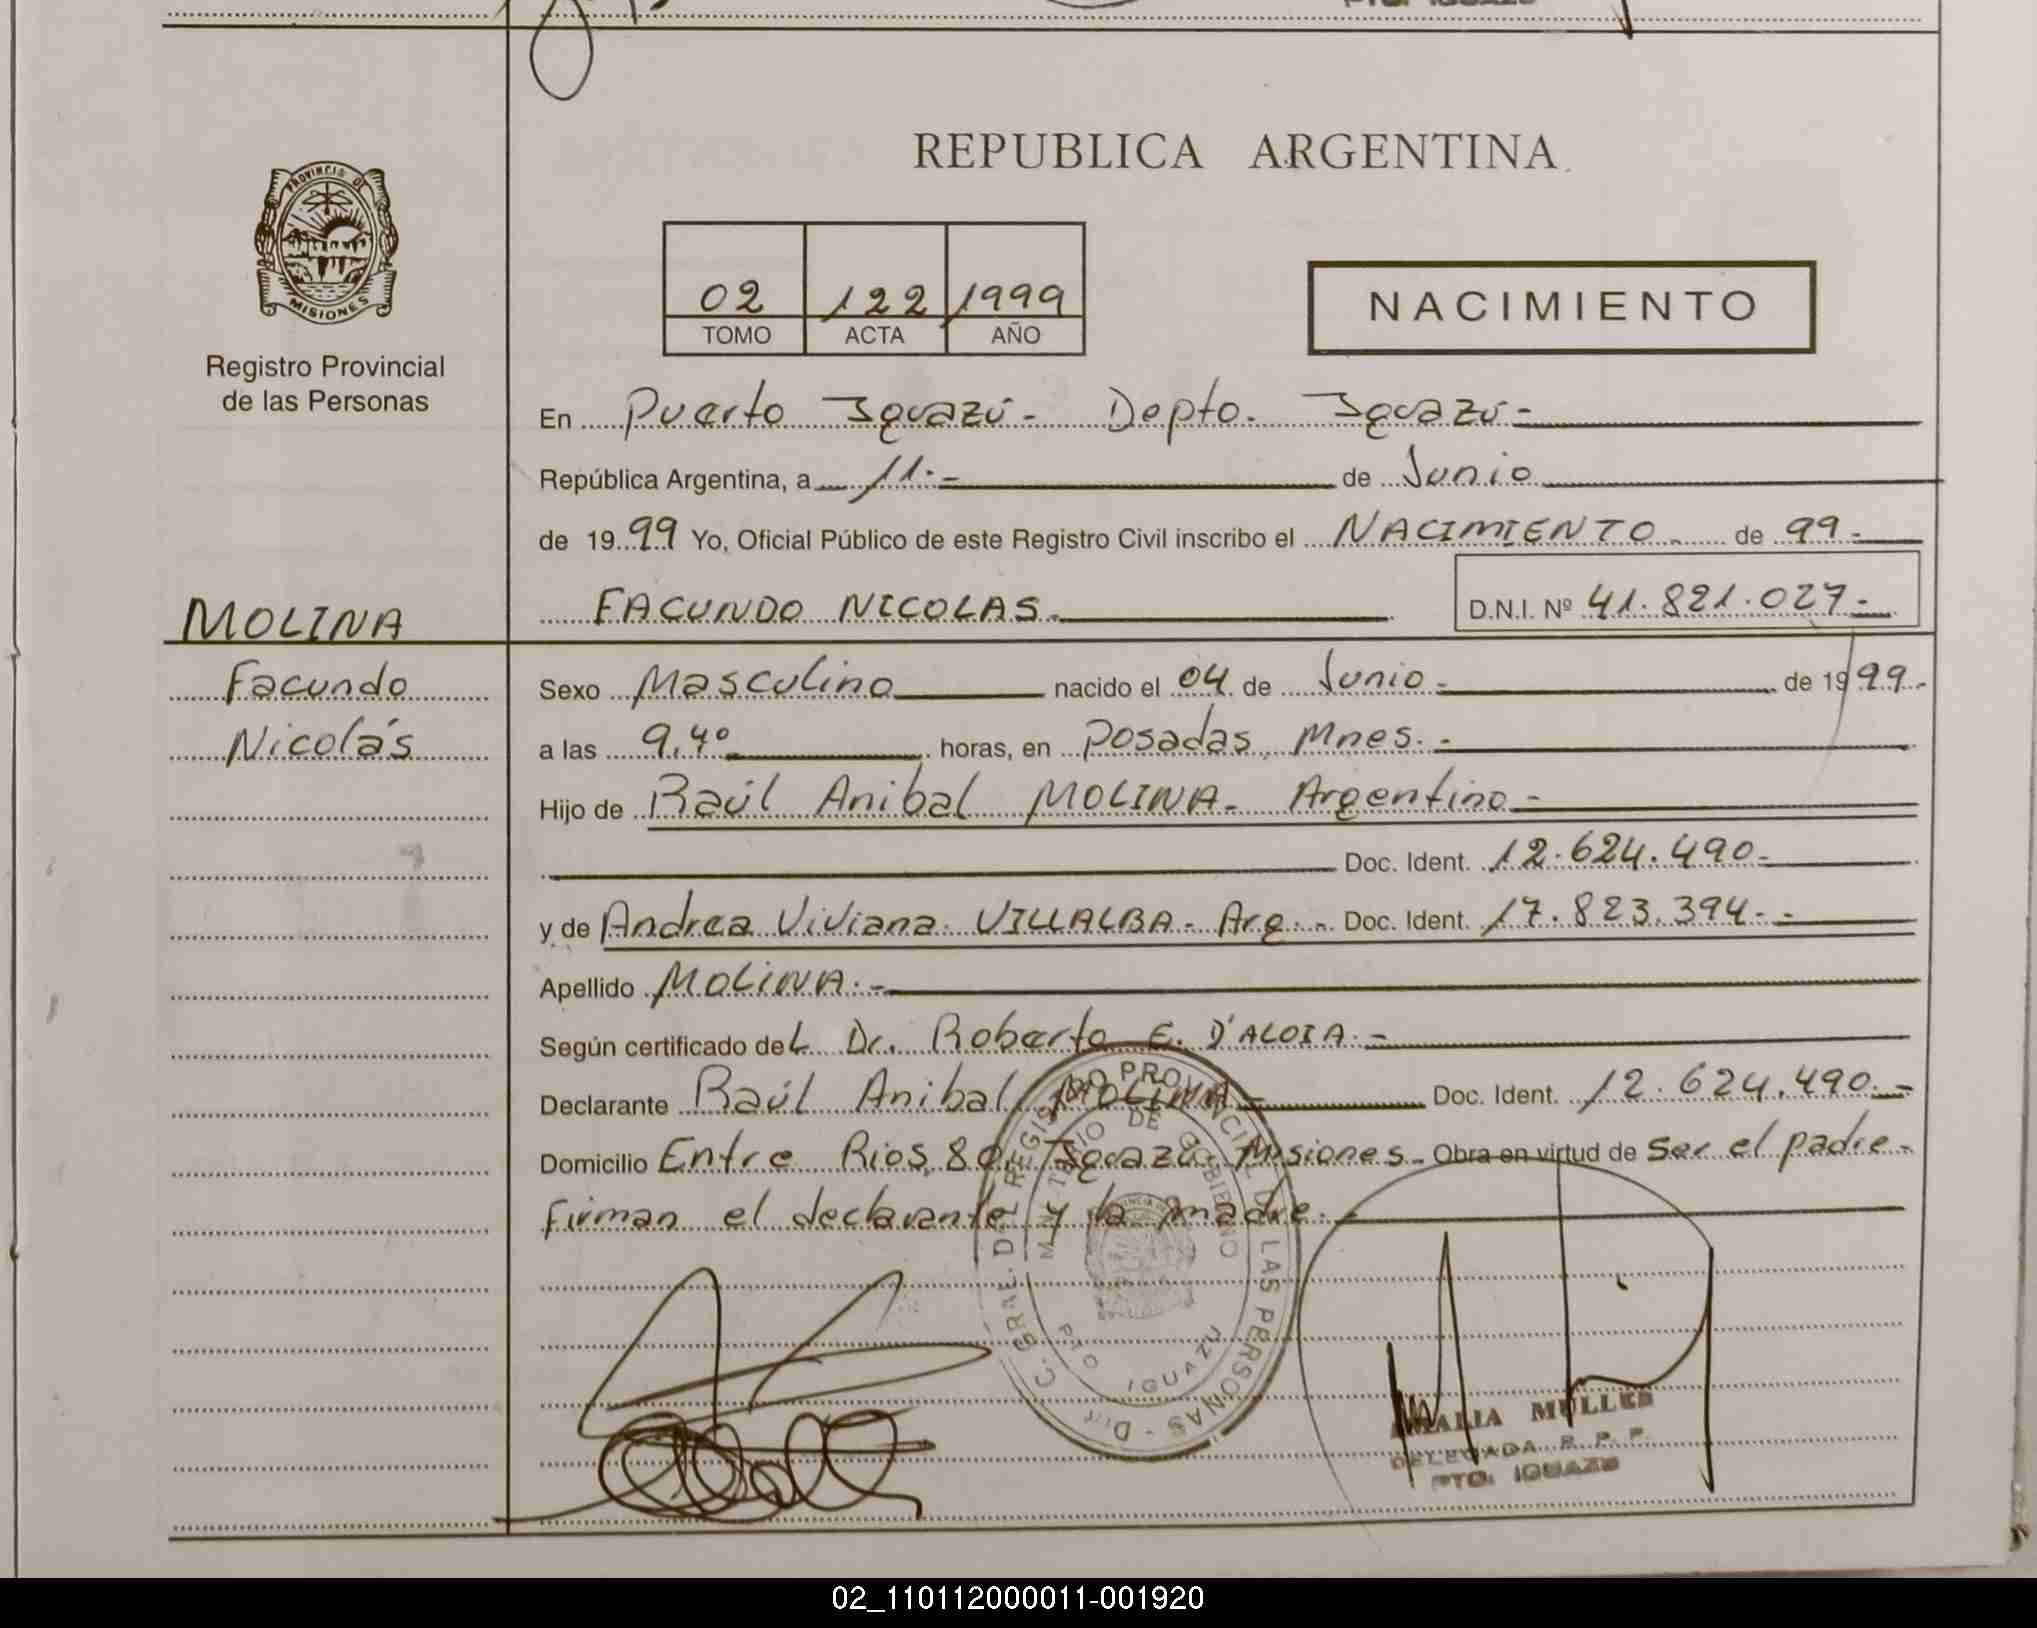 PTO. IGUAZU
PROVINCIA DE
MISIONES
Registro Provincial
de las Personas
REPUBLICA ARGENTINA
02 122 1999
TOMO ACTA AÑO
NACIMIENTO
En Puerto Iguazú- Depto. Iguazú-
República Argentina, a 11.- de Junio
de 1999 Yo, Oficial Público de este Registro Civil inscribo el NACIMIENTO. de 99-
MOLINA
FACUNDO NICOLAS. D.N.I. Nº 41.821.027-
Facundo
Sexo Masculino nacido el 04 de Junio.- de 1999.-
Nicolás
a las 9,40 horas, en Posadas, Mnes.-
Hijo de Raúl Anibal MOLINA- Argentino-
Doc. Ident. 12.624.490-
y de Andrea Viviana VILLALBA- Arg.- Doc. Ident. 17.823.394--
Apellido MOLINA.-
Según certificado deL Dr. Roberto E. D'ALOIA.-
Declarante Raúl Anibal MOLINA- Doc. Ident. 12.624.490.-
Domicilio Entre Rios, 80, Iguazú- Misiones- Obra en virtud de Ser el padre-
firman el declarante y la madre.-
DIR. GRAL. DEL REGISTRO PROVINCIAL DE LAS PERSONAS
MINISTERIO DE GOBIERNO
PTO IGUAZU
AMALIA MULLER
DELEGADA R. P. P.
PTO. IGUAZU
02_110112000011-001920